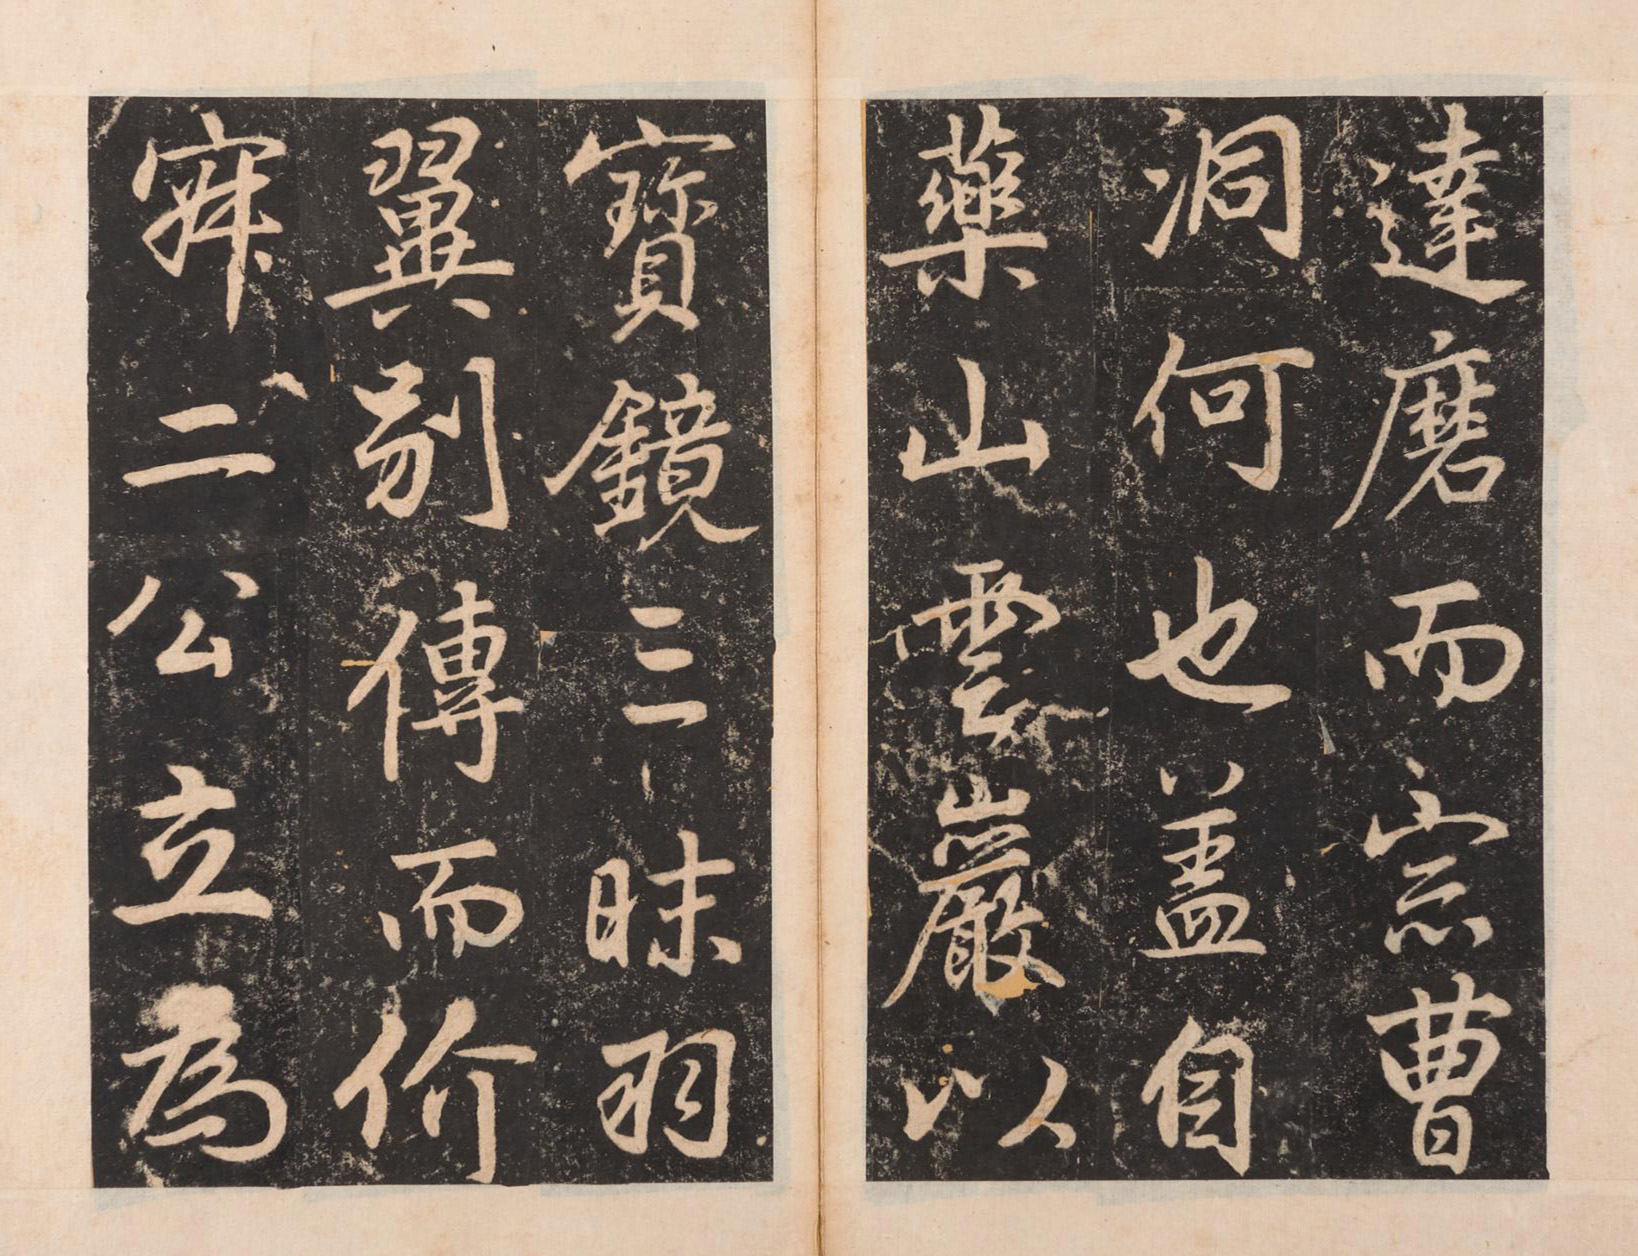 達磨而宗曹
洞何也盖自
藥山雲巖以
寶鏡三昧羽
翼別傳而价
寂二公立為